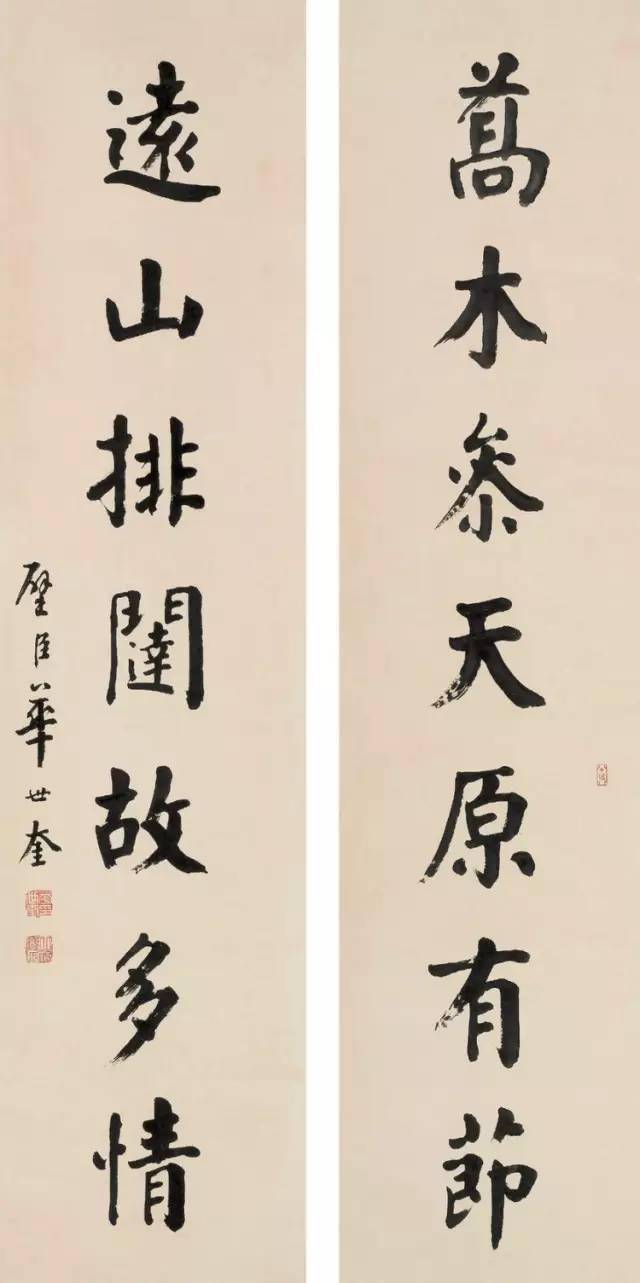 蒿木叅天原有節
遠山排闥故多情
璧臣華世奎